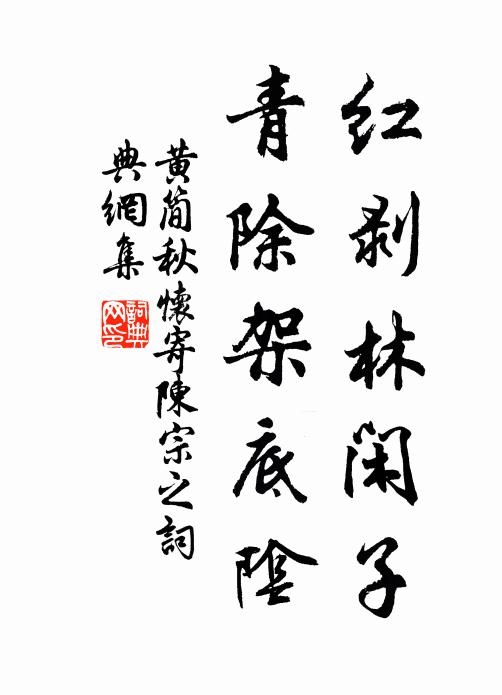 红剥林闲子
青除架底陰
黄简秋懷寄陳宗之詞
典網集
詞典網印